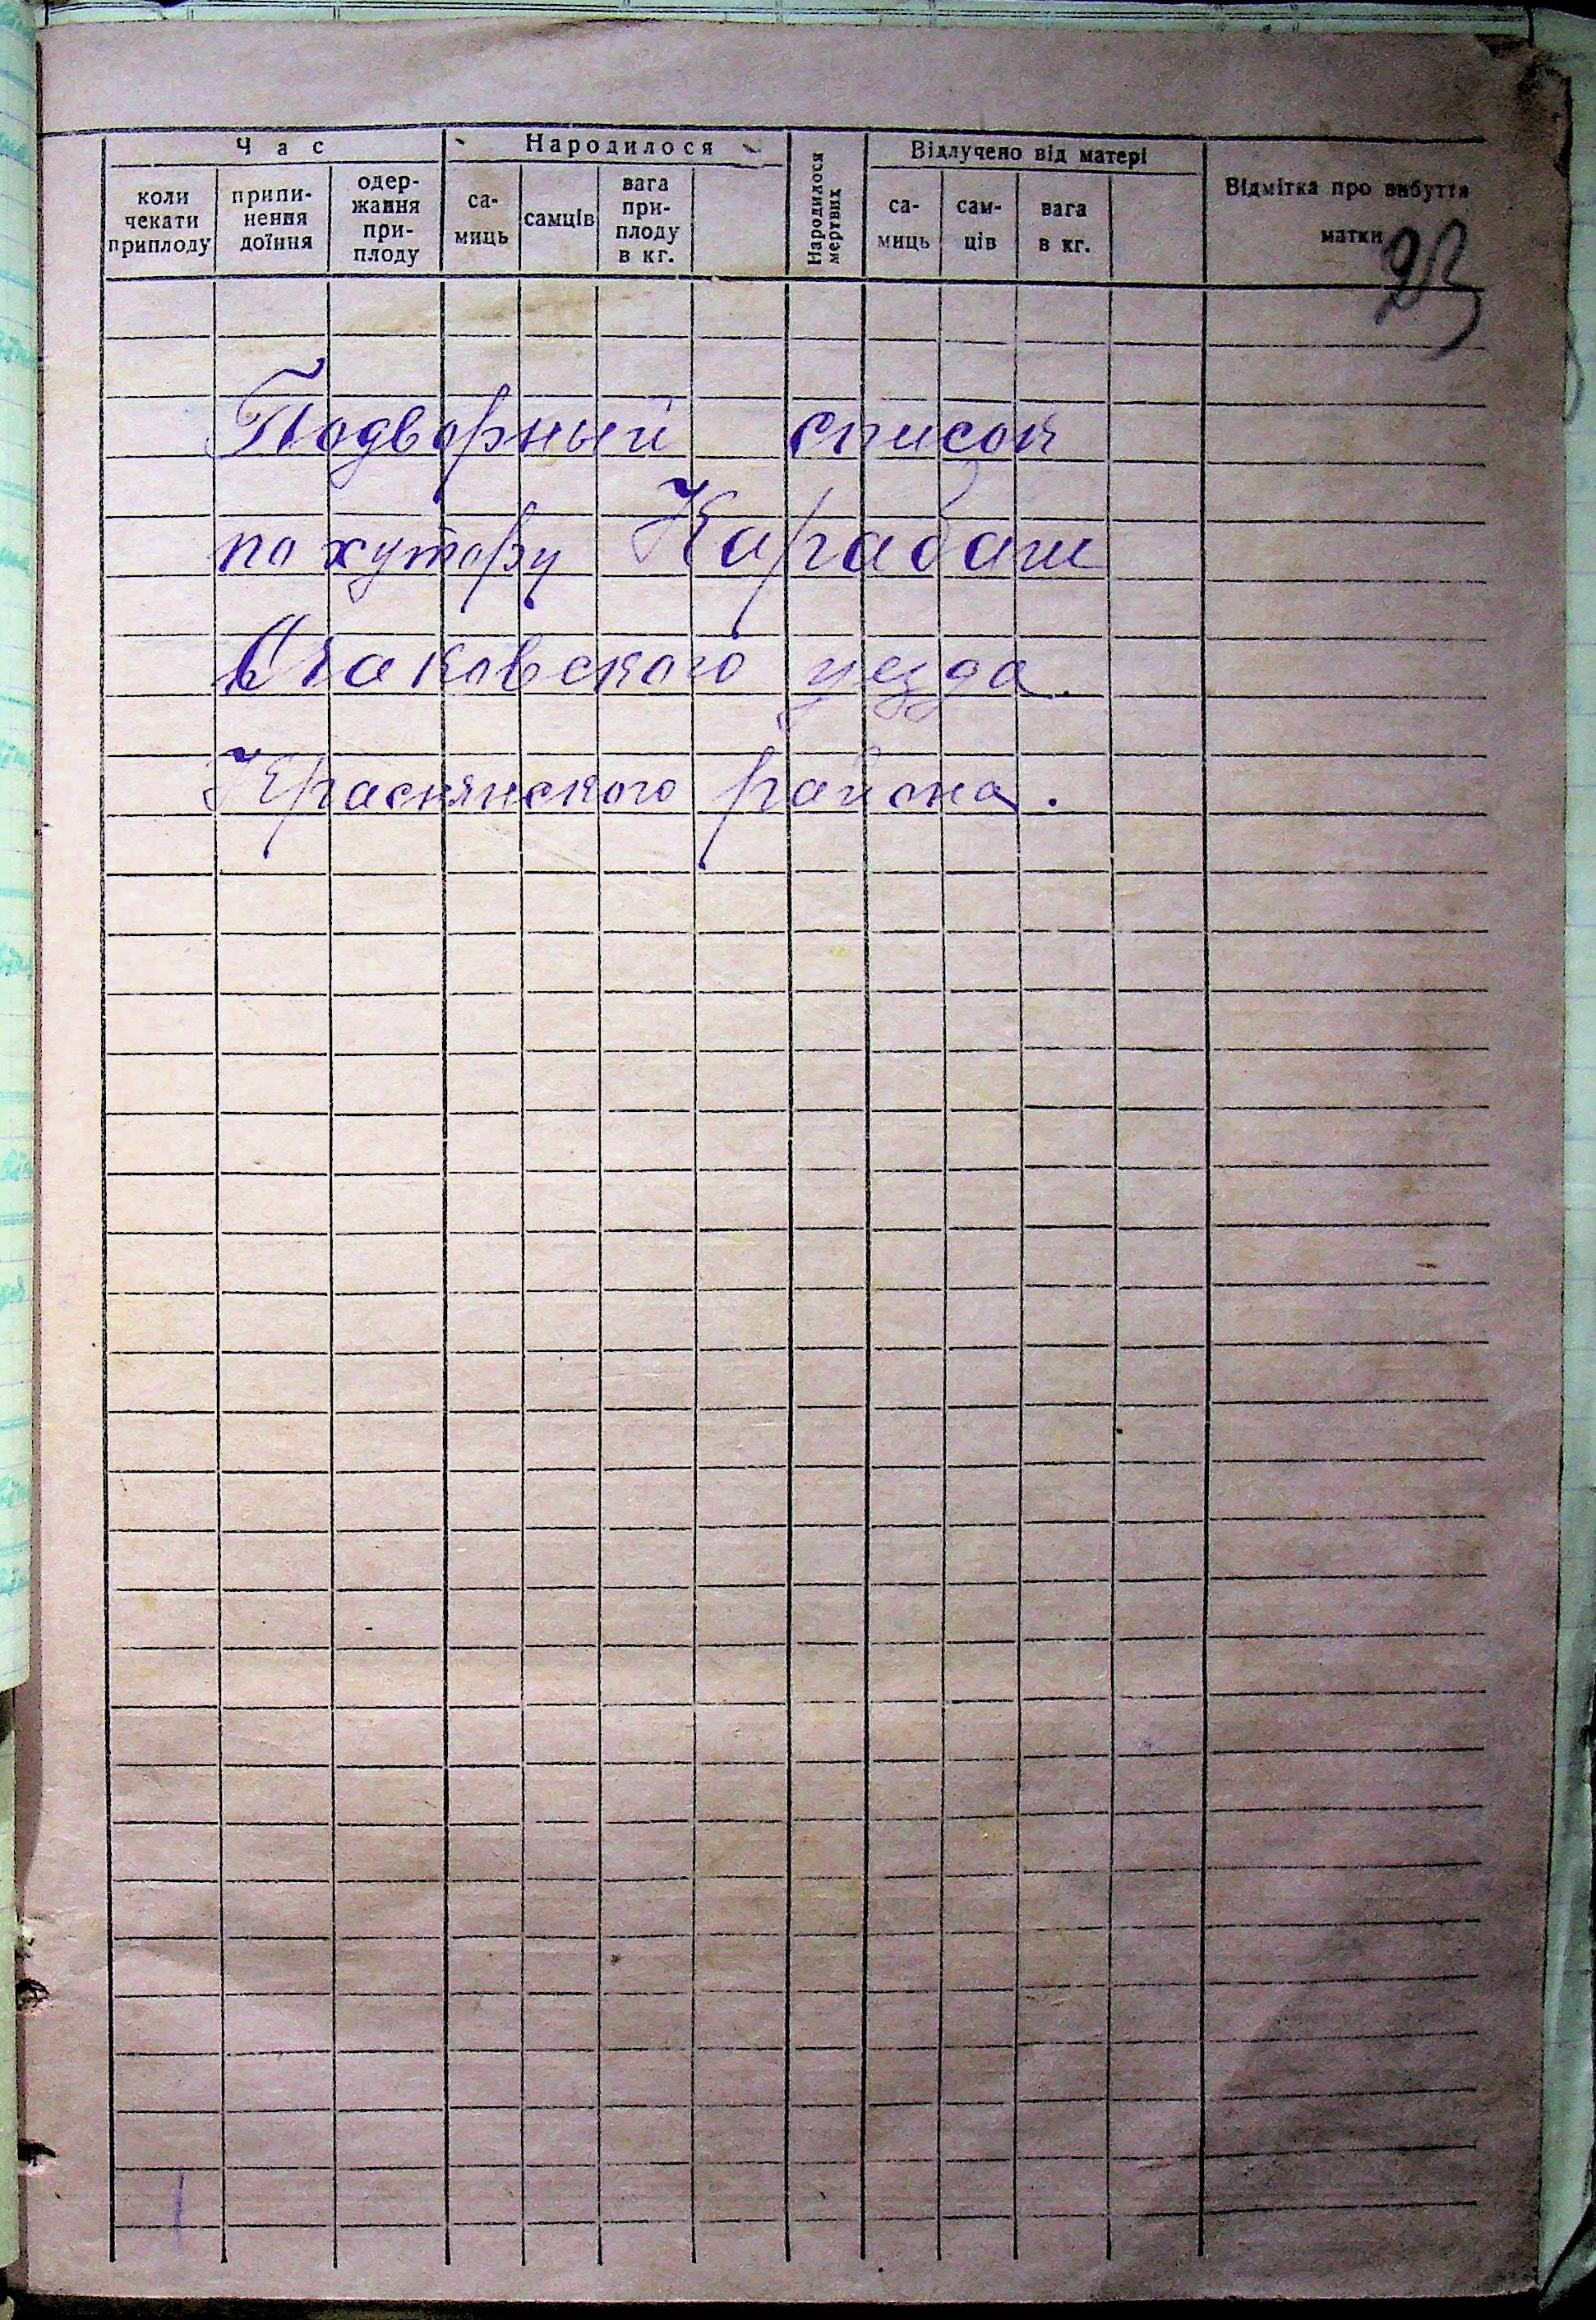 Час
Народилося
Народилося мертвих
Відлучено від матері
Відмітка про вибуття
матки
коли
чекати
приплоду
припи-
нення
доїння
одер-
жання
при-
плоду
са-
миць
самців
вага
при-
плоду
в кг.
са-
миць
сам-
ців
вага
в кг.
Подворный список
по хутору Карабаш
Очаковского уезда.
Краснянского района.